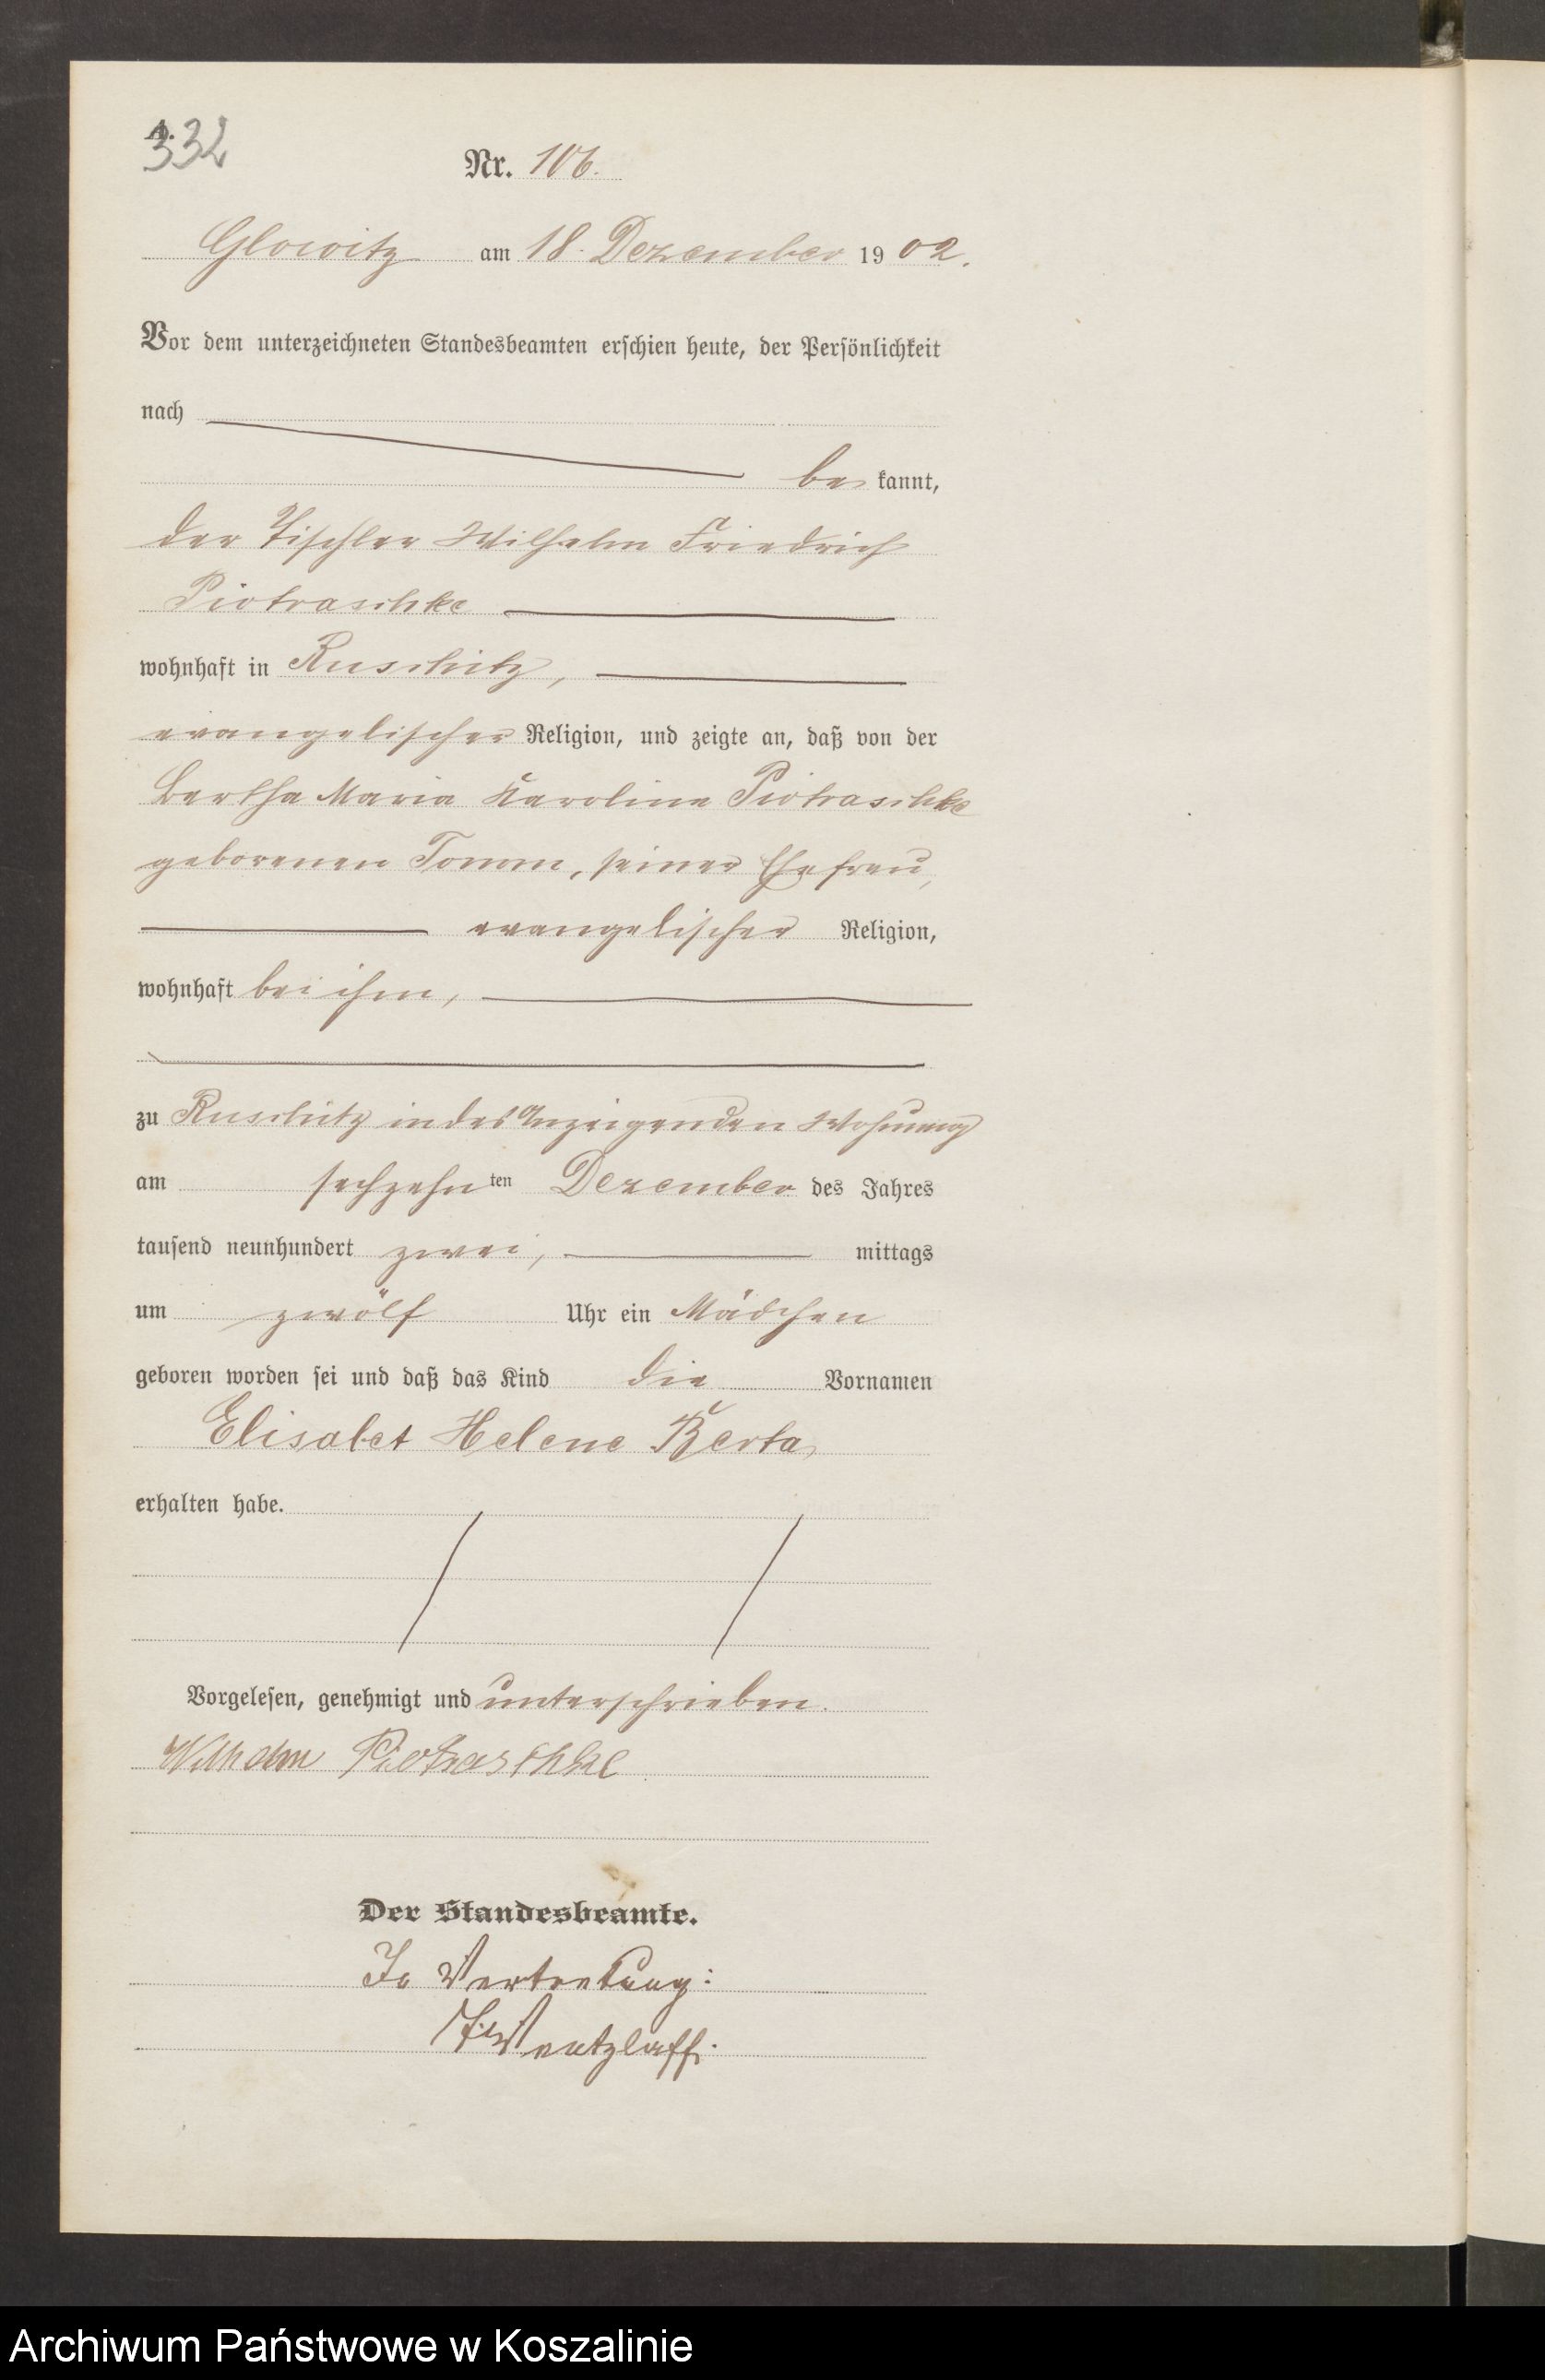 A.
332
Nr. 106.
Glowitz am 18. Dezember 1902.
Vor dem unterzeichneten Standesbeamten erschien heute, der Persönlichkeit
nach
be kannt,
der Tischler Wilhelm Friedrich
Piotraschke
wohnhaft in Ruschütz,
evangelischer Religion, und zeigte an, daß von der
Bertha Maria Karoline Piotraschke
geborenen Tomm, seiner Ehefrau,
evangelischer Religion,
wohnhaft bei ihm,
zu Ruschütz in des Anzeigenden Wohnung
am sechzehn ten Dezember des Jahres
tausend neunhundert zwei, mittags
um zwölf Uhr ein Mädchen
geboren worden sei und daß das Kind die Vornamen
Elisabet Helene Berta
erhalten habe.
Vorgelesen, genehmigt und unterschrieben.
Wilhelm Piotraschke
Der Standesbeamte.
In Vertretung:
Wentzlaff.
Archiwum Państwowe w Koszalinie